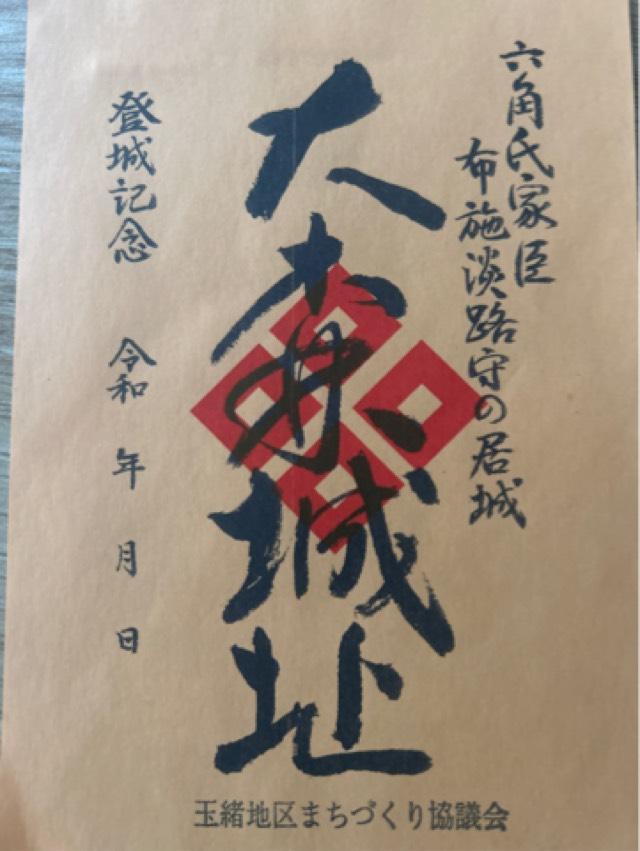 六角氏家臣
布施淡路守の居城
大森城址
登城記念 令和 年 月 日
玉緒地区まちづくり協議会